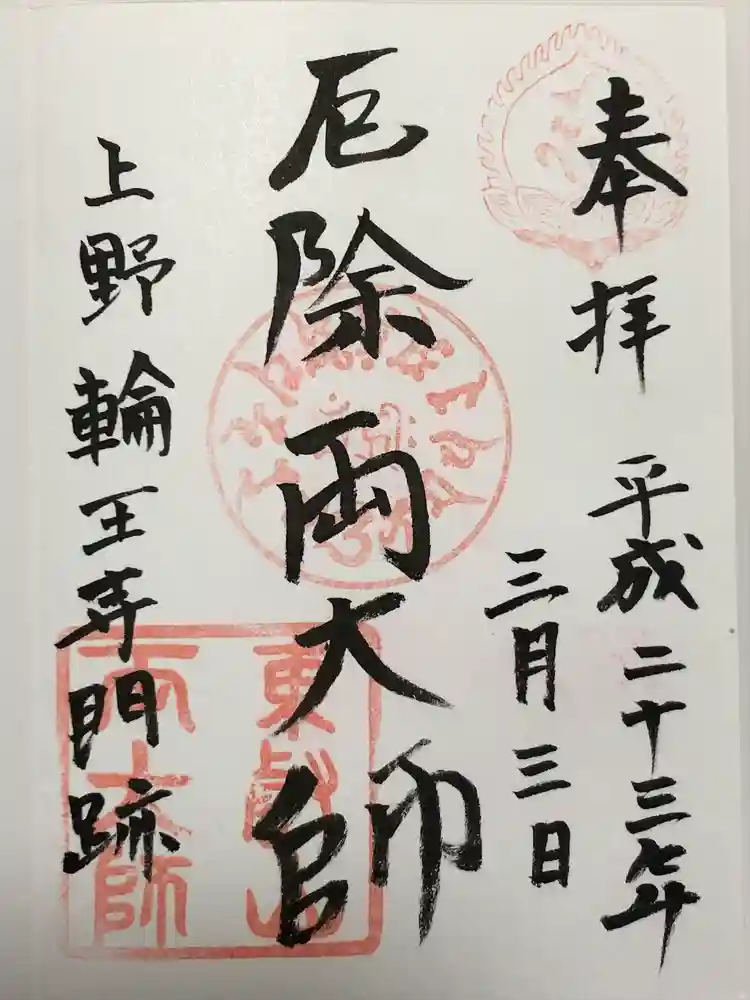 奉拝 平成二十三年
三月三日
厄除両大師
上野輪王寺門跡
東叡山
両大師